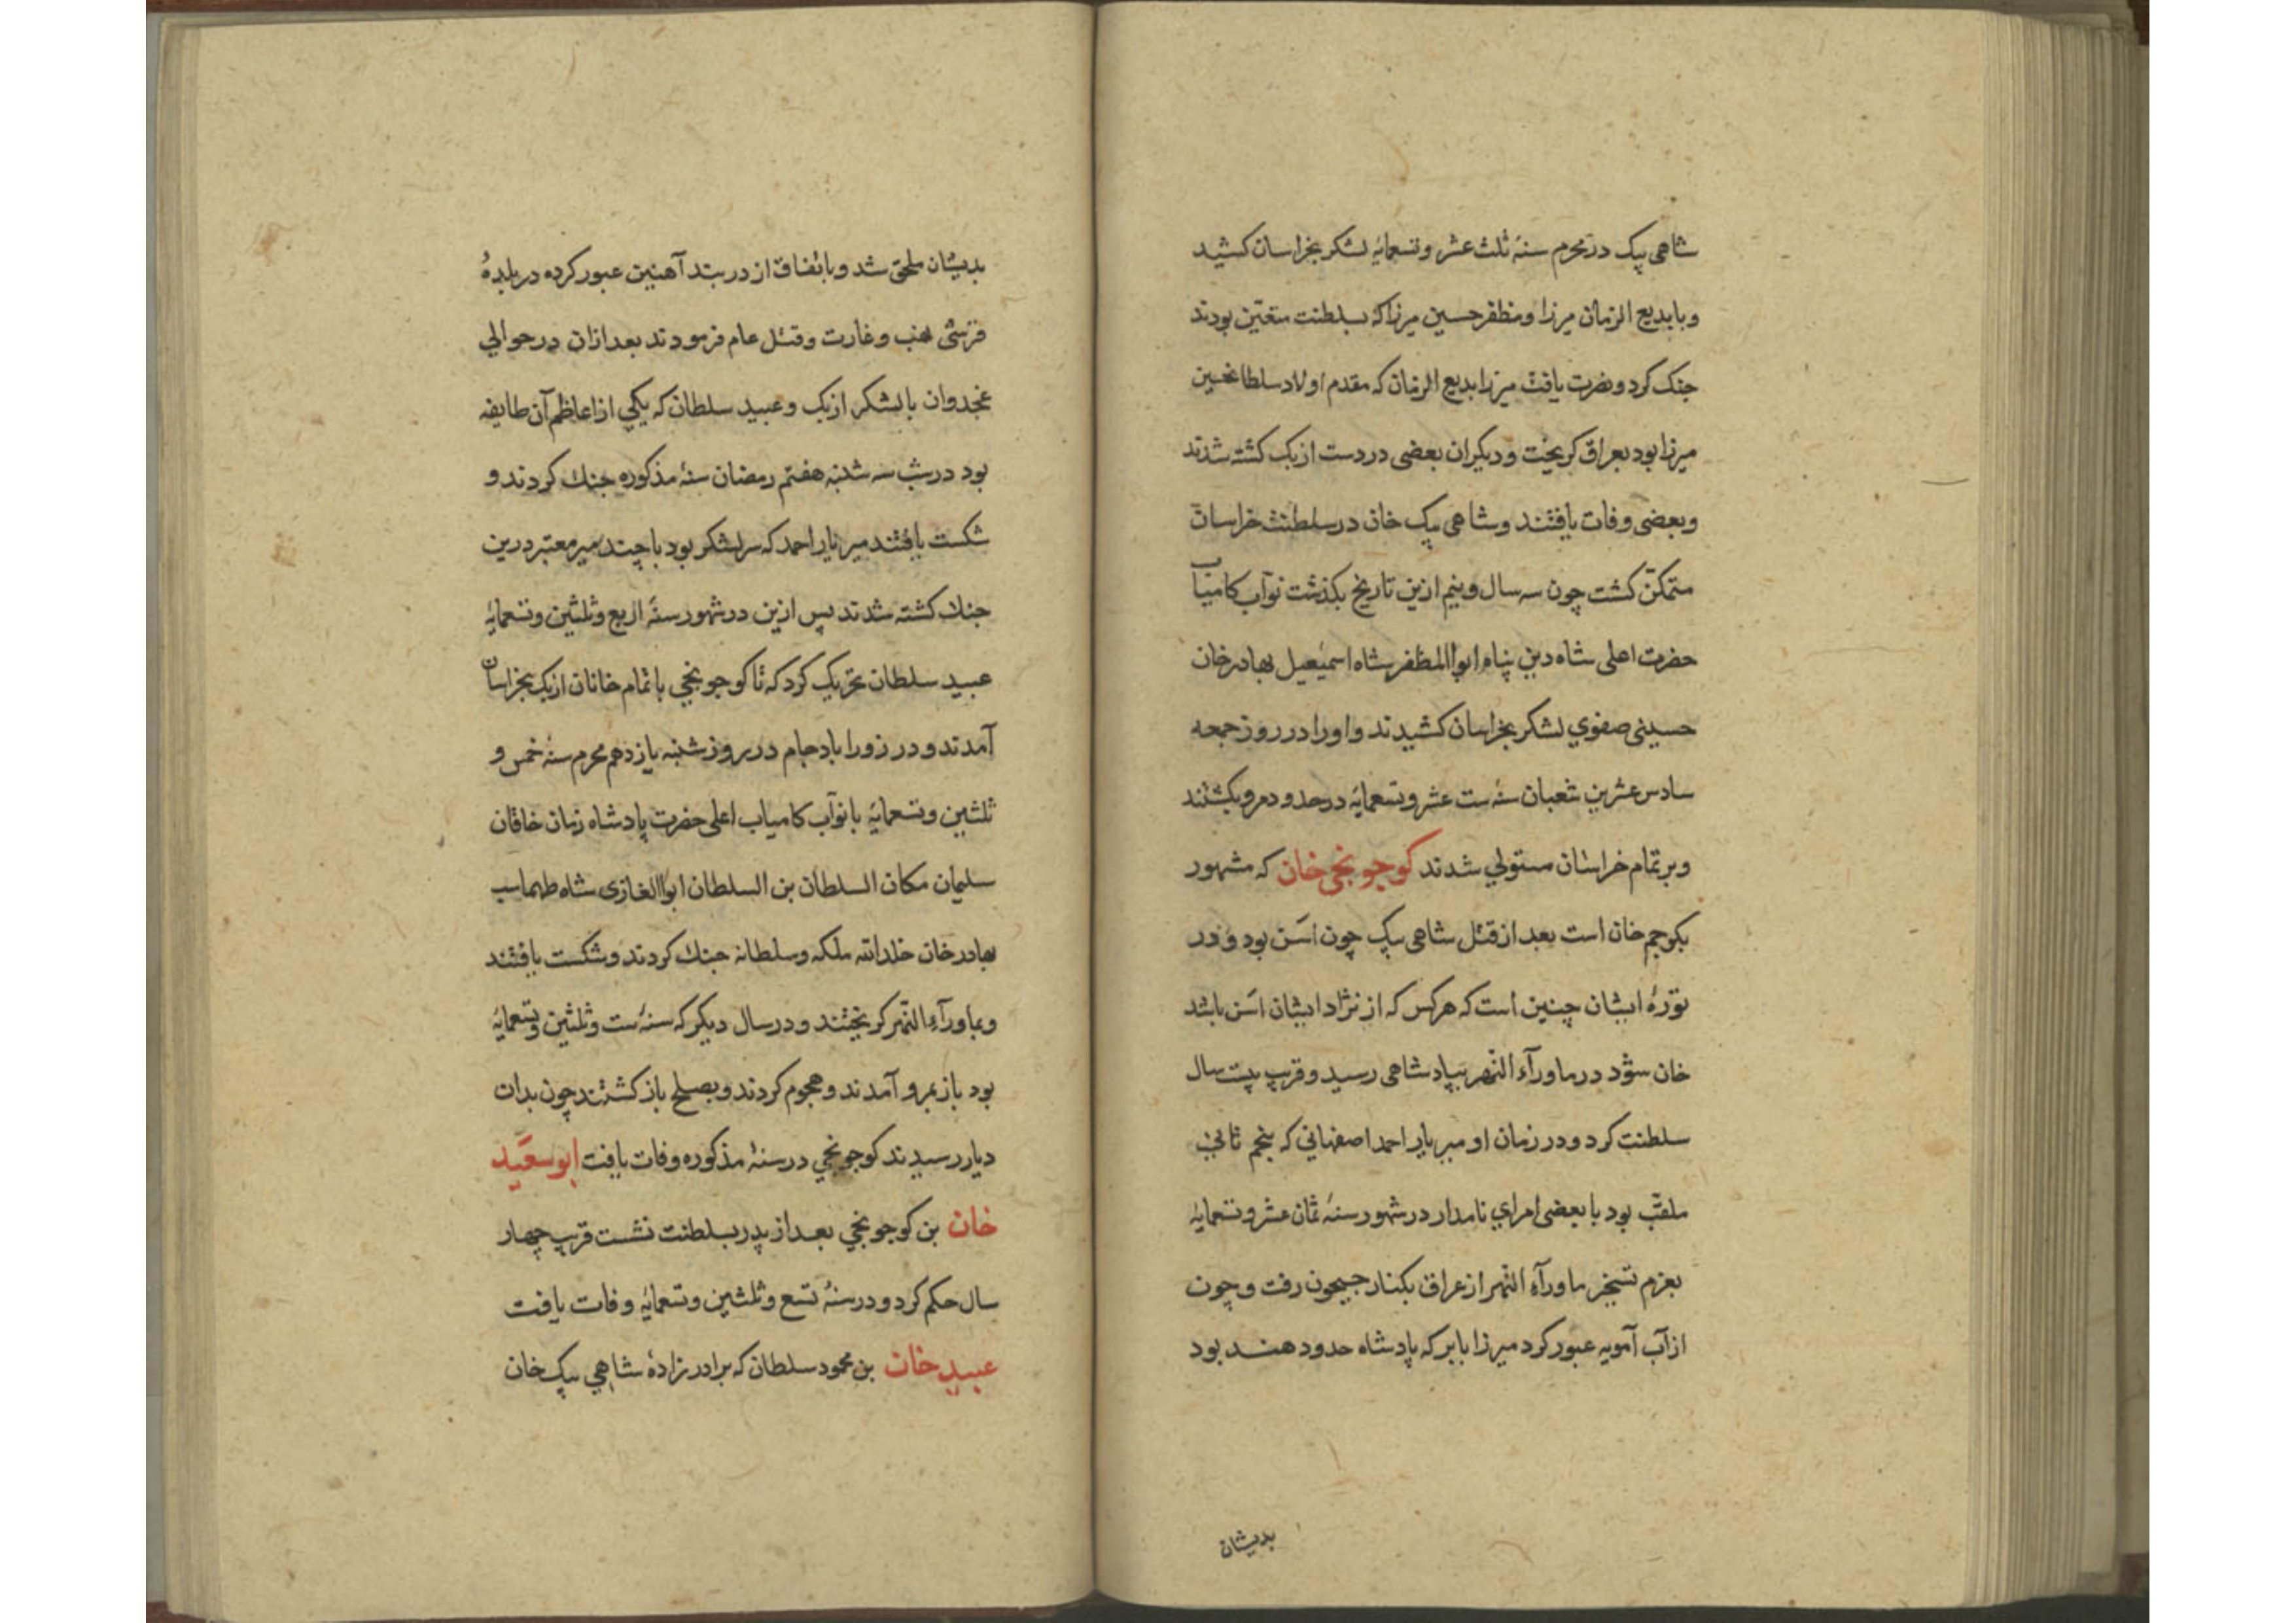 شاهی بیک در محرم سنهٔ ثلث عشر و تسعمایه لشکر بخراسان کشید
و با بدیع الزمان میرزا و مظفر حسین میرزا که بسلطنت متعین بودند
جنک کرد و نصرت یافت میرزا بدیع الزمان که مقدم اولاد سلطانحسین
میرزا بود بعراق کریخت و دیکران بعضی در دست ازبک کشته شدند
و بعضی وفات یافتند و شاهی بیک خان در سلطنت خراسان
متمکّن کشت چون سه سال و نیم ازین تاریخ بکذشت نوّاب کامیاب
حضرت اعلی شاه دین پناه ابواالمظفر شاه اسمٰعیل بهادر خان
حسینی صفوی لشکر بخراسان کشیدند و او را در روز جمعه
سادس عشرین شعبان سنهٔ ست عشر و تسعمایه در حدود مرو بکشتند
و بر تمام خراسان مستولی شدند کوجونجی خان که مشهور
بکوجم خان است بعد از قتل شاهی بیک چون اسَن بود و در
تورهٔ ایشان چنین است که هرکس که از نژاد ایشان اسَن باشد
خان شود در ماورآء النّهر بپادشاهی رسید و قرب بیست سال
سلطنت کرد و در زمان او میر یار احمد اصفهانی که بنجم ثانی
ملقّب بود با بعضی امرای نامدار در شهور سنهٔ ثمان عشر و تسعمایه
بعزم تسخیر ماورآء النّهر از عراق بکنار جیحون رفت و چون
از آب آمویه عبور کرد میرزا بابر که پادشاه حدود هند بود
بدیشان
بدیشان ملحق شد و باتفاق از دربند آهنین عبور کرده در بلدهٔ
قرشی نهب و غارت و قتل عام فرمودند بعد ازان در حوالی
غجدوان با لشکر ازبک و عبید سلطان که یکی از اعاظم آن طایفه
بود در شب سه شنبه هفتم رمضان سنهٔ مذکوره جنک کردند و
شکست یافتند میر یار احمد که سر لشکر بود با چند میر معتبر درین
جنک کشته شدند پس ازین در شهور سنهٔ اربع و ثلثین و تسعمایه
عبید سلطان تحریک کرد که تا کوجونجی با تمام خانان ازبک بخراسان
آمدند و در زوراباد جام در روز شنبه یازدهم محرم سنهٔ خمس و
ثلثین و تسعمایه با نوّاب کامیاب اعلی حضرت پادشاه زمان خاقان
سلیمان مکان السلطان بن السلطان ابواالغازی شاه طهماسب
بهادر خان خلد الله ملکه و سلطانه جنک کردند و شکست یافتند
و بماورآء النّهر کریختند و در سال دیکر که سنهٔ ست و ثلثین و تسعمایه
بود باز بمرو آمدند و هجوم کردند و بصلح باز کشتند چون بدان
دیار رسیدند کوجونجی در سنهٔ مذکوره وفات یافت ابو سعید
خان بن کوجونجی بعد از پدر بسلطنت نشست قرب چهار
سال حکم کرد و در سنهٔ تسع و ثلثین و تسعمایه وفات یافت
عبید خان بن محمود سلطان که برادر زادهٔ شاهی بیک خان